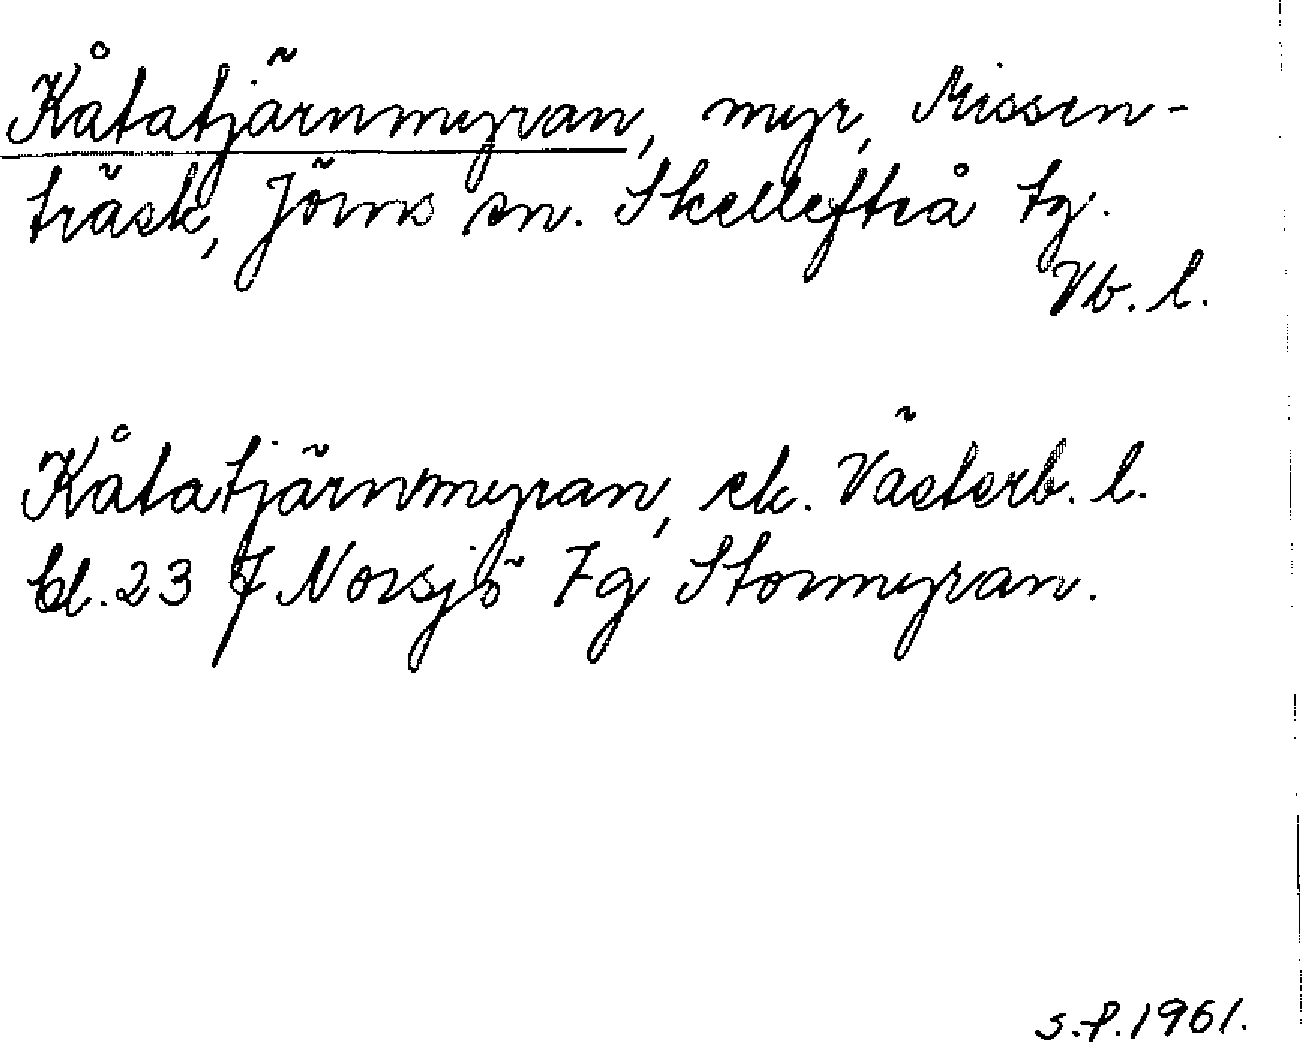 Kåtatjärnmyran, myr, Missen-
träsk, Jörns sn. Skellefteå tg.
Vb. l.
Kåtatjärnmyran, ek. Västerb. l.
bl. 23 J Norsjö 7 g Stormyran.
S.-f. 1961.